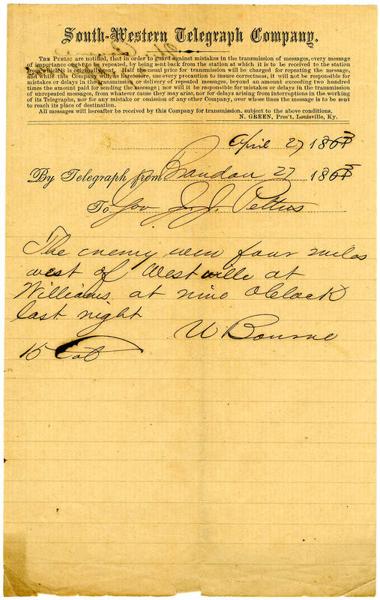 South-Western Telegraph Company.
THE PUBLIC are notified, that in order to guard against mistakes in the transmission of messages, every message
of importance ought to be repeated, by being sent back from the station at which it is to be received to the station
from which it is originally sent. Half the usual price for transmission will be charged for repeating the message,
and while this Company will, as heretofore, use every precaution to insure correctness, it will not be responsible for
mistakes or delays in the transmission or delivery of repeated messages, beyond an amount exceeding two hundred
times the amount paid for sending the message; nor will it be responsible for mistakes or delays in the transmission
of unrepeated messages, from whatever cause they may arise, nor for delays arising from interruptions in the working
of its Telegraphs, nor for any mistake or omission of any other Company, over whose lines the message is to be sent
to reach its place of destination.
All messages will hereafter be received by this Company for transmission, subject to the above conditions.
N. GREEN, Pres't, Louisville, Ky.
April 27 1863
By Telegraph from Brandon 27 1863
To Gov J. J. Pettus
The enemy were four miles
west of Westville at
Williams at nine Oclock
last night
W Bourne
15